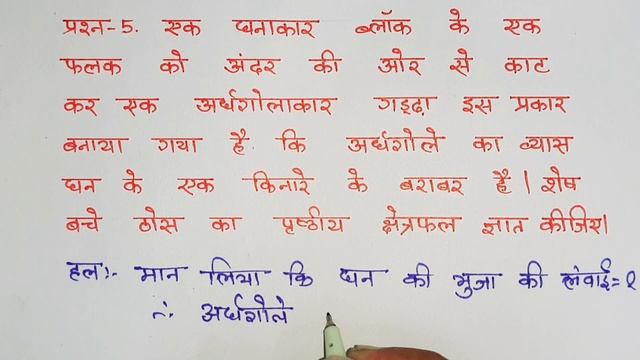 प्रश्न-5. एक घनाकार ब्लॉक के एक
फलक को अंदर की ओर से काट
कर एक अर्धगोलाकार गड्ढ़ा इस प्रकार
बनाया गया है. कि अर्धगोले का व्यास
घन के एक किनारे के बराबर है | शेष
बचे ठोस का पृष्ठीय क्षेत्रफल ज्ञात कीजिए।
हलः- मान लिया कि घन की भुजा की लंबाई= l
∴ अर्धगोले